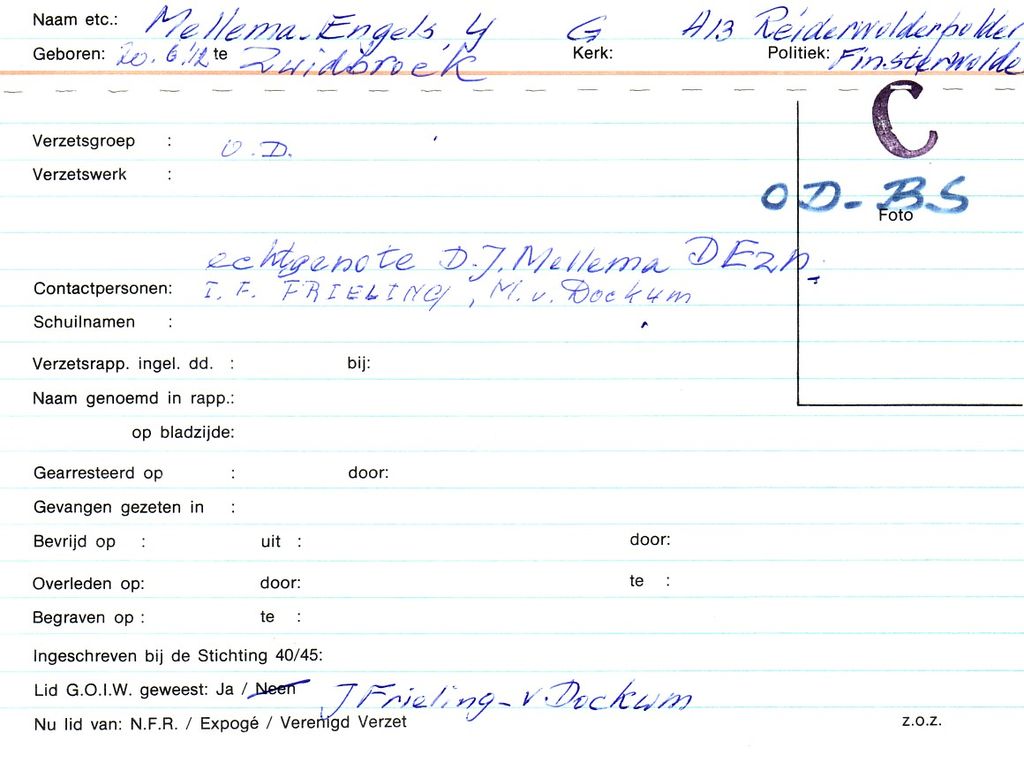 Naam etc.: Mellema-Engels, Y G A13 Reiderwolderpolder
Geboren: 20.6.'12 te Zuidbroek Kerk: Politiek: Finsterwolde
C
Verzetsgroep : O.D.
Verzetswerk :
OD-BS
Foto
echtgenote D.J. Mellema DEzn.
Contactpersonen: I. F. FRIELING, M. v. Dockum
Schuilnamen :
Verzetsrapp. ingel. dd. : bij:
Naam genoemd in rapp.:
op bladzijde:
Gearresteerd op : door:
Gevangen gezeten in :
Bevrijd op : uit : door:
Overleden op: door: te :
Begraven op : te :
Ingeschreven bij de Stichting 40/45:
Lid G.O.I.W. geweest: Ja / Neen J Frieling-v. Dockum
Nu lid van: N.F.R. / Expogé / Verenigd Verzet z.o.z.